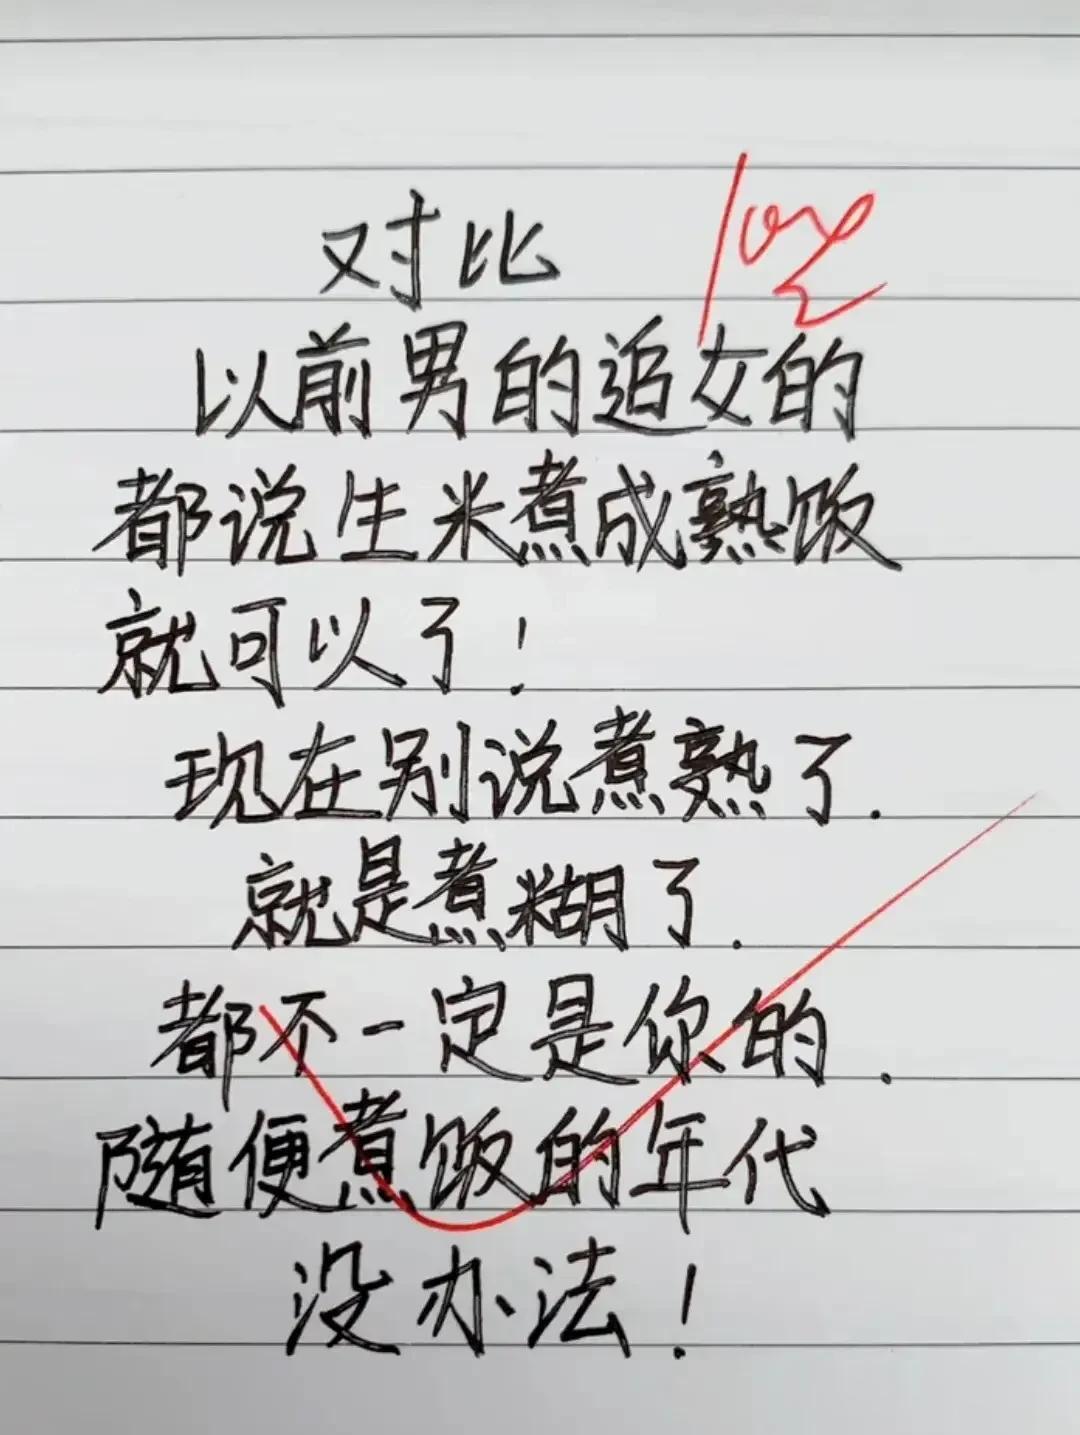 对比
以前男的追女的
都说生米煮成熟饭
就可以了！
现在别说煮熟了.
就是煮糊了.
都不一定是你的.
随便煮饭的年代
没办法！